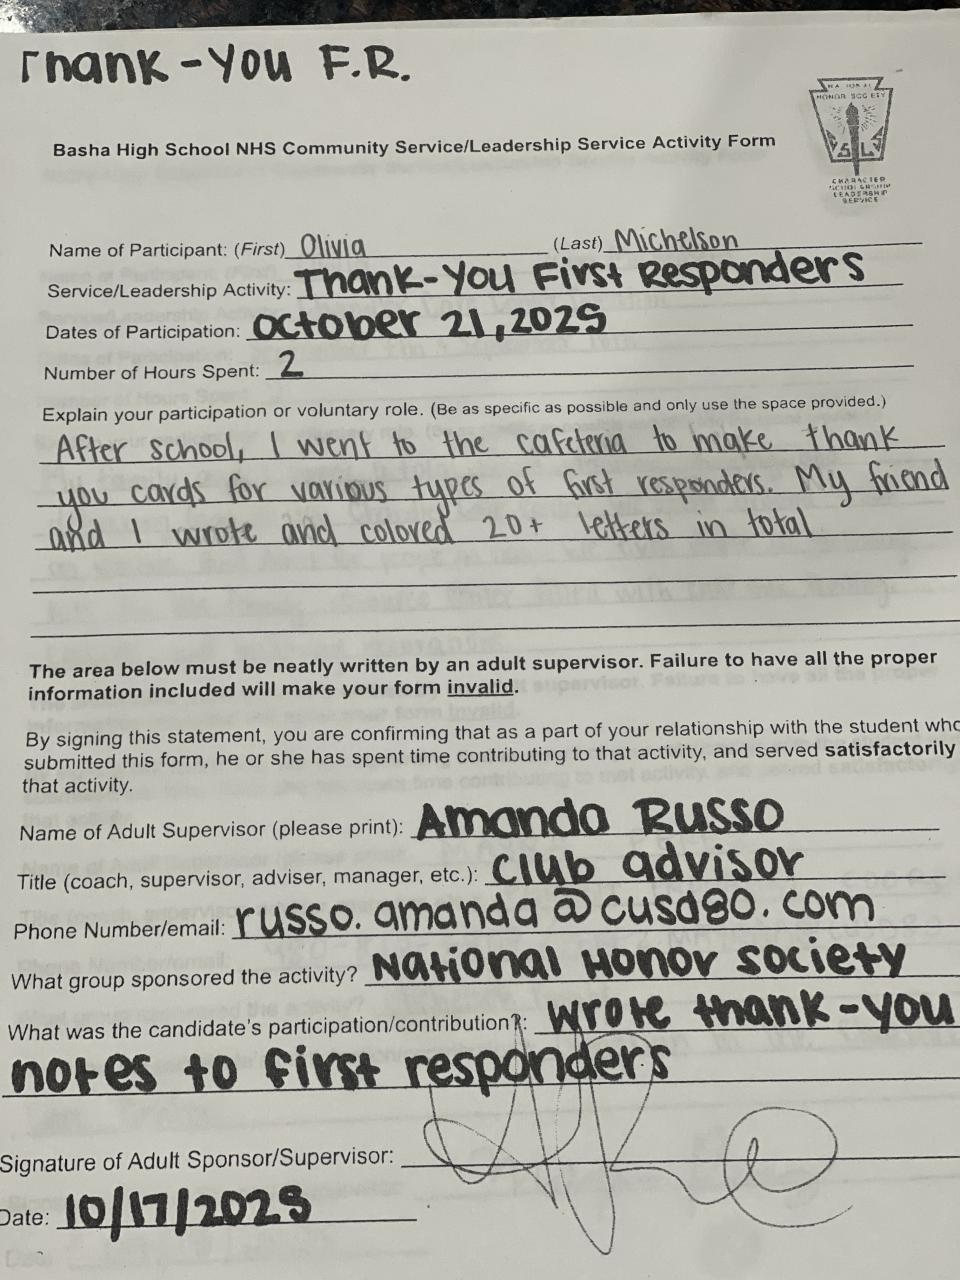 Thank-You F.R.
NATIONAL
HONOR SOCIETY
S L S
CHARACTER
SCHOLARSHIP
LEADERSHIP
SERVICE
Basha High School NHS Community Service/Leadership Service Activity Form
Name of Participant: (First) Olivia (Last) Michelson
Service/Leadership Activity: Thank-You First Responders
Dates of Participation: October 21, 2025
Number of Hours Spent: 2
Explain your participation or voluntary role. (Be as specific as possible and only use the space provided.)
After school, I went to the cafeteria to make thank
you cards for various types of first responders. My friend
and I wrote and colored 20+ letters in total
The area below must be neatly written by an adult supervisor. Failure to have all the proper
information included will make your form invalid.
By signing this statement, you are confirming that as a part of your relationship with the student who
submitted this form, he or she has spent time contributing to that activity, and served satisfactorily
that activity.
Name of Adult Supervisor (please print): Amanda Russo
Title (coach, supervisor, adviser, manager, etc.): club advisor
Phone Number/email: russo.amanda@cusd80.com
What group sponsored the activity? National Honor Society
What was the candidate's participation/contribution?: wrote thank-you
notes to first responders
Signature of Adult Sponsor/Supervisor:
Date: 10/17/2025